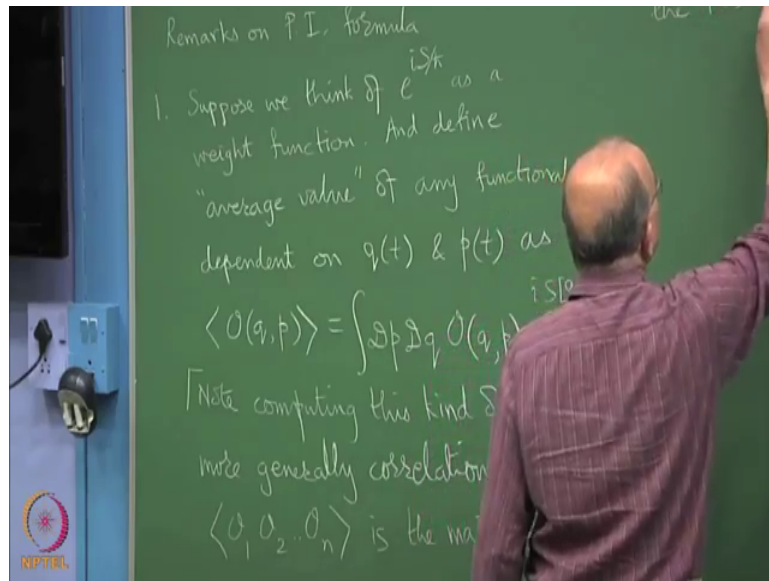 Remarks on P.I. formula
the
1. Suppose we think of e^{iS/ħ} as a
weight function. And define
"average value" of any functional
dependent on q(t) & p(t) as
⟨O(q,p)⟩ = ∫ Dp Dq O(q,p) e^{iS[q
[Note computing this kind of
more generally correlation
⟨O_1 O_2 .. O_n⟩ is the
NPTEL